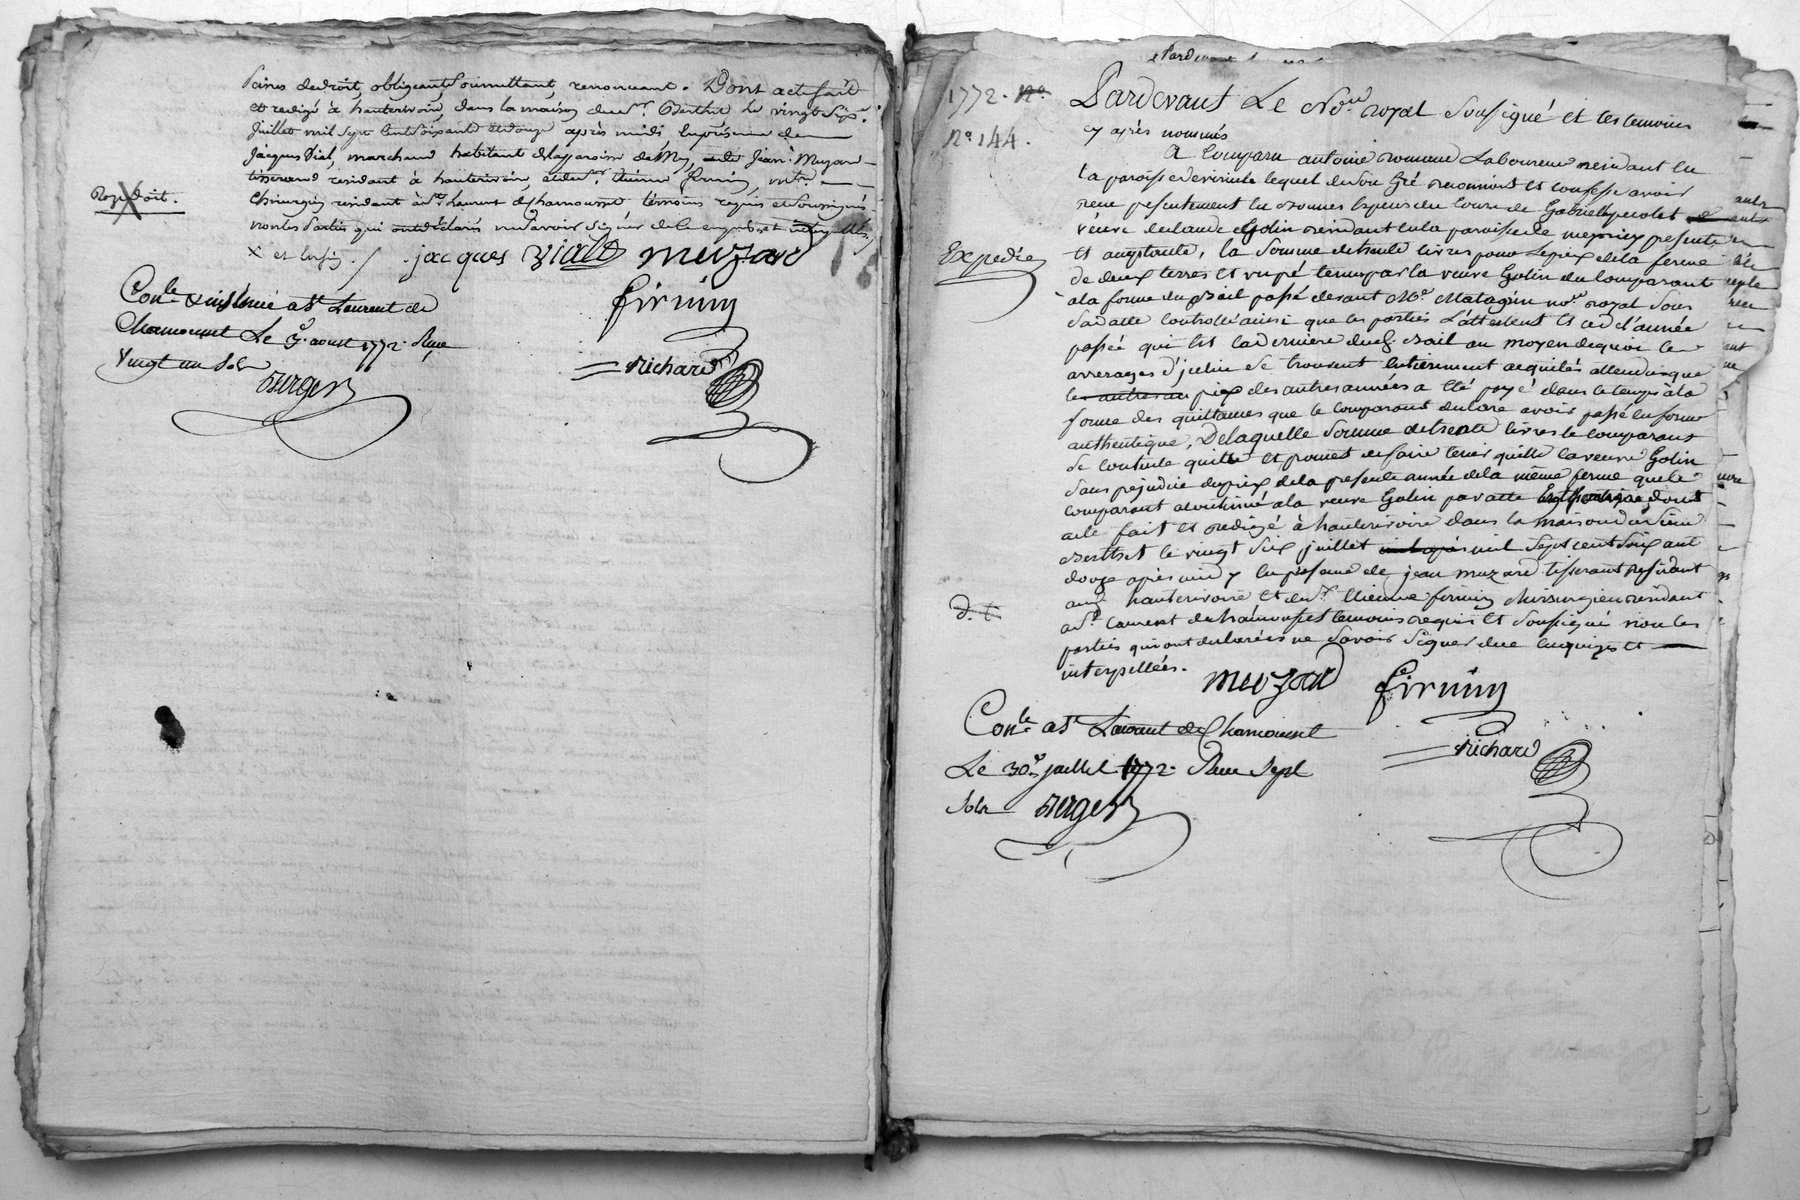 Peines de droit, obligeant soumettant, renonceant. Dont acte fait
et redigé à hauterivoire, dans la maison du sr. Berthet le vingt six
juillet mil sept cent soixante et douze après midi en presence de
jacques Vial, marchand habitant de la paroisse de Mey, et de Jean Muzard
tisserand residant à hauterivoire, et du sr. Etienne firmin, mtre.
Chirurgien residant à st. laurent de chamousset témoins requis et soussignés
non les Parties qui ont déclarés ne savoir signer de ce enquises et
jacques Viald muzard
firmin
Richard
Conle. et insinué a st Laurent de
Chamousset Le aoust 1772. Reçu
Vingt un sols
Burger
1772.
No. 144.
Expedié
Pardevant Le Nore. royal soussigné et les temoins
cy après nommés
A comparu antoine laboureur residant en
la paroisse de lequel de son gré reconnoit et confesse avoir
receu presentement en bonnes especes du cours de Gabrielle
veuve de claude Golin residant en la paroisse de presente
et acceptante, la somme de trente livres pour le prix de la ferme
de deux terres et un pré tenus par la veuve Golin du comparant
a la forme du Bail passé devant Me. Matagrin nore. royal sous
sa datte controllé ainsi que les parties l'attestent et ce de l'année
passée qui est la derniere dud. Bail au moyen de quoi les
arrerages d'icelui se trouvent entierement acquités attendu que
le prix des autres années a été payé dans le temps à la
forme des quittances que le comparant declare avoir passé en forme
authentique, De laquelle somme de trente livres le comparant
se contente quitte et promet de faire tenir quitte la veuve Golin
sans prejudice du prix de la presente année de la même ferme que le
comparant a continué a la veuve Golin par acte dont
acte fait et redigé à hauterivoire dans la maison du sieur
Berthet le vingt six juillet mil sept cent soix ant
douze après midy en presence de jean muzard tisserant residant
aud. hauterivoire et du sr. Etienne firmin chirurgien residant
a st. laurent de chamousset temoins requis et soussigné non les
parties qui ont declarées ne savoir signer de ce enquises et
interpellées.
muzard firmin
Richard
Conle. a st Laurent de Chamousset
Le 30e juillet 1772. Reçu sept
sols Burger